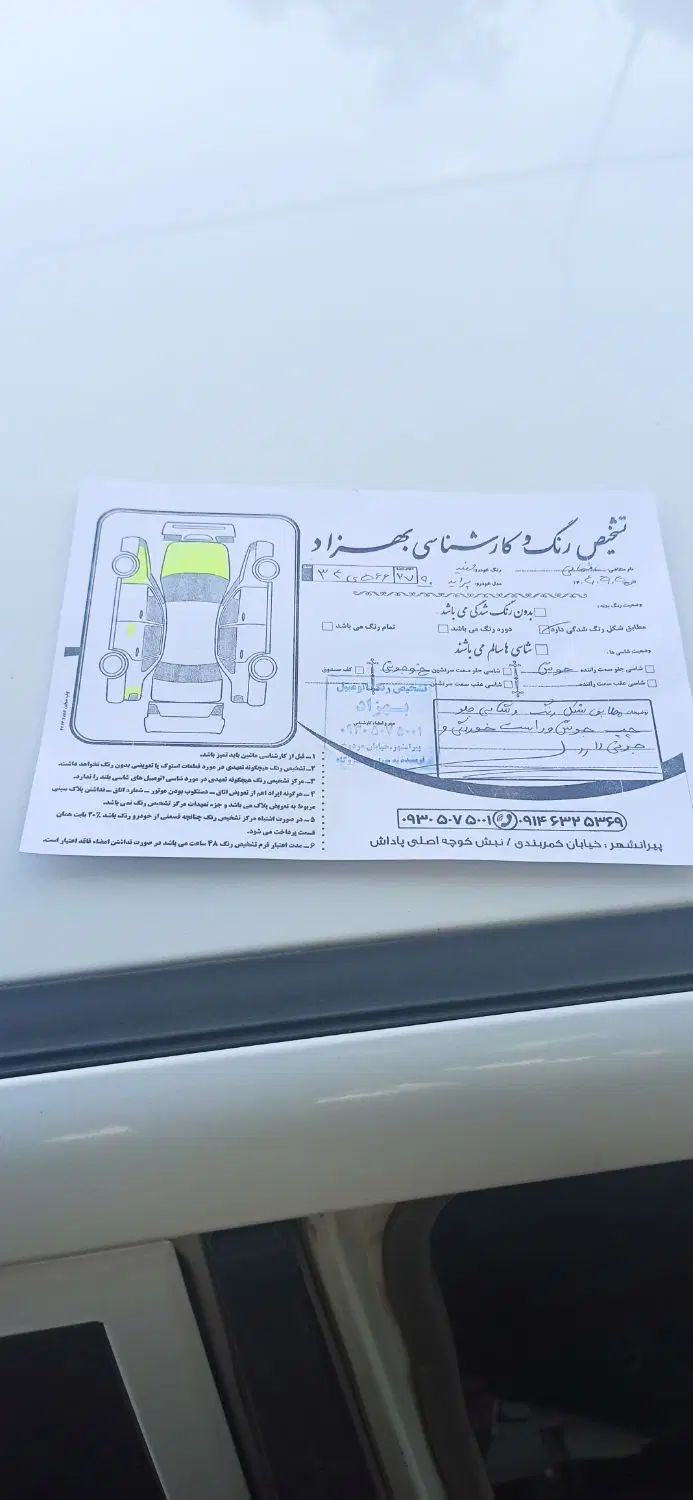 تشخیص رنگ و کارشناسی بهزاد
نام متقاضی
رنگ خودرو: سفید
مدل خودرو: پراید
وضعیت رنگ بدنه:
بدون رنگ شدگی می باشد
مطابق شکل رنگ شدگی دارد
دوره رنگ می باشد
تمام رنگ می باشد
وضعیت شاسی ها:
شاسی ها سالم می باشند
شاسی جلو سمت راننده
شاسی جلو سمت سرنشین
کف صندوق
شاسی عقب سمت راننده
شاسی عقب سمت سرنشین
توضیحات: مطابق شکل رنگ و شاسی جلو
چپ جوش و راست خوردگی و
جزئی دارد
تشخیص رنگ اتومبیل
بهزاد
مهر و امضاء کارشناس
۰۹۳۰۵۰۷۵۰۰۱
۱ـ قبل از کارشناسی ماشین باید تمیز باشد.
۲ـ تشخیص رنگ هیچگونه تعهدی در مورد قطعات استوک یا تعویضی بدون رنگ نخواهد داشت.
۳ـ مرکز تشخیص رنگ هیچگونه تعهدی در مورد شاسی اتومبیل های شاسی بلند را ندارد.
۴ـ هرگونه ایراد اعم از تعویض اتاق ـ دستکوب بودن موتور ـ شماره اتاق ـ نداشتن پلاک سینی
مربوط به تعویض پلاک می باشد و جزء تعهدات مرکز تشخیص رنگ نمی باشد.
۵ـ در صورت اشتباه مرکز تشخیص رنگ چنانچه قسمتی از خودرو رنگ باشد ۲۰٪ بابت همان
قسمت پرداخت می شود.
۶ـ مدت اعتبار فرم تشخیص رنگ ۴۸ ساعت می باشد در صورت نداشتن امضاء فاقد اعتبار است.
۰۹۳۰ ۵۰۷ ۵۰۰۱ ۰۹۱۴ ۶۳۲ ۵۳۶۹
پیرانشهر: خیابان کمربندی / نبش کوچه اصلی پاداش